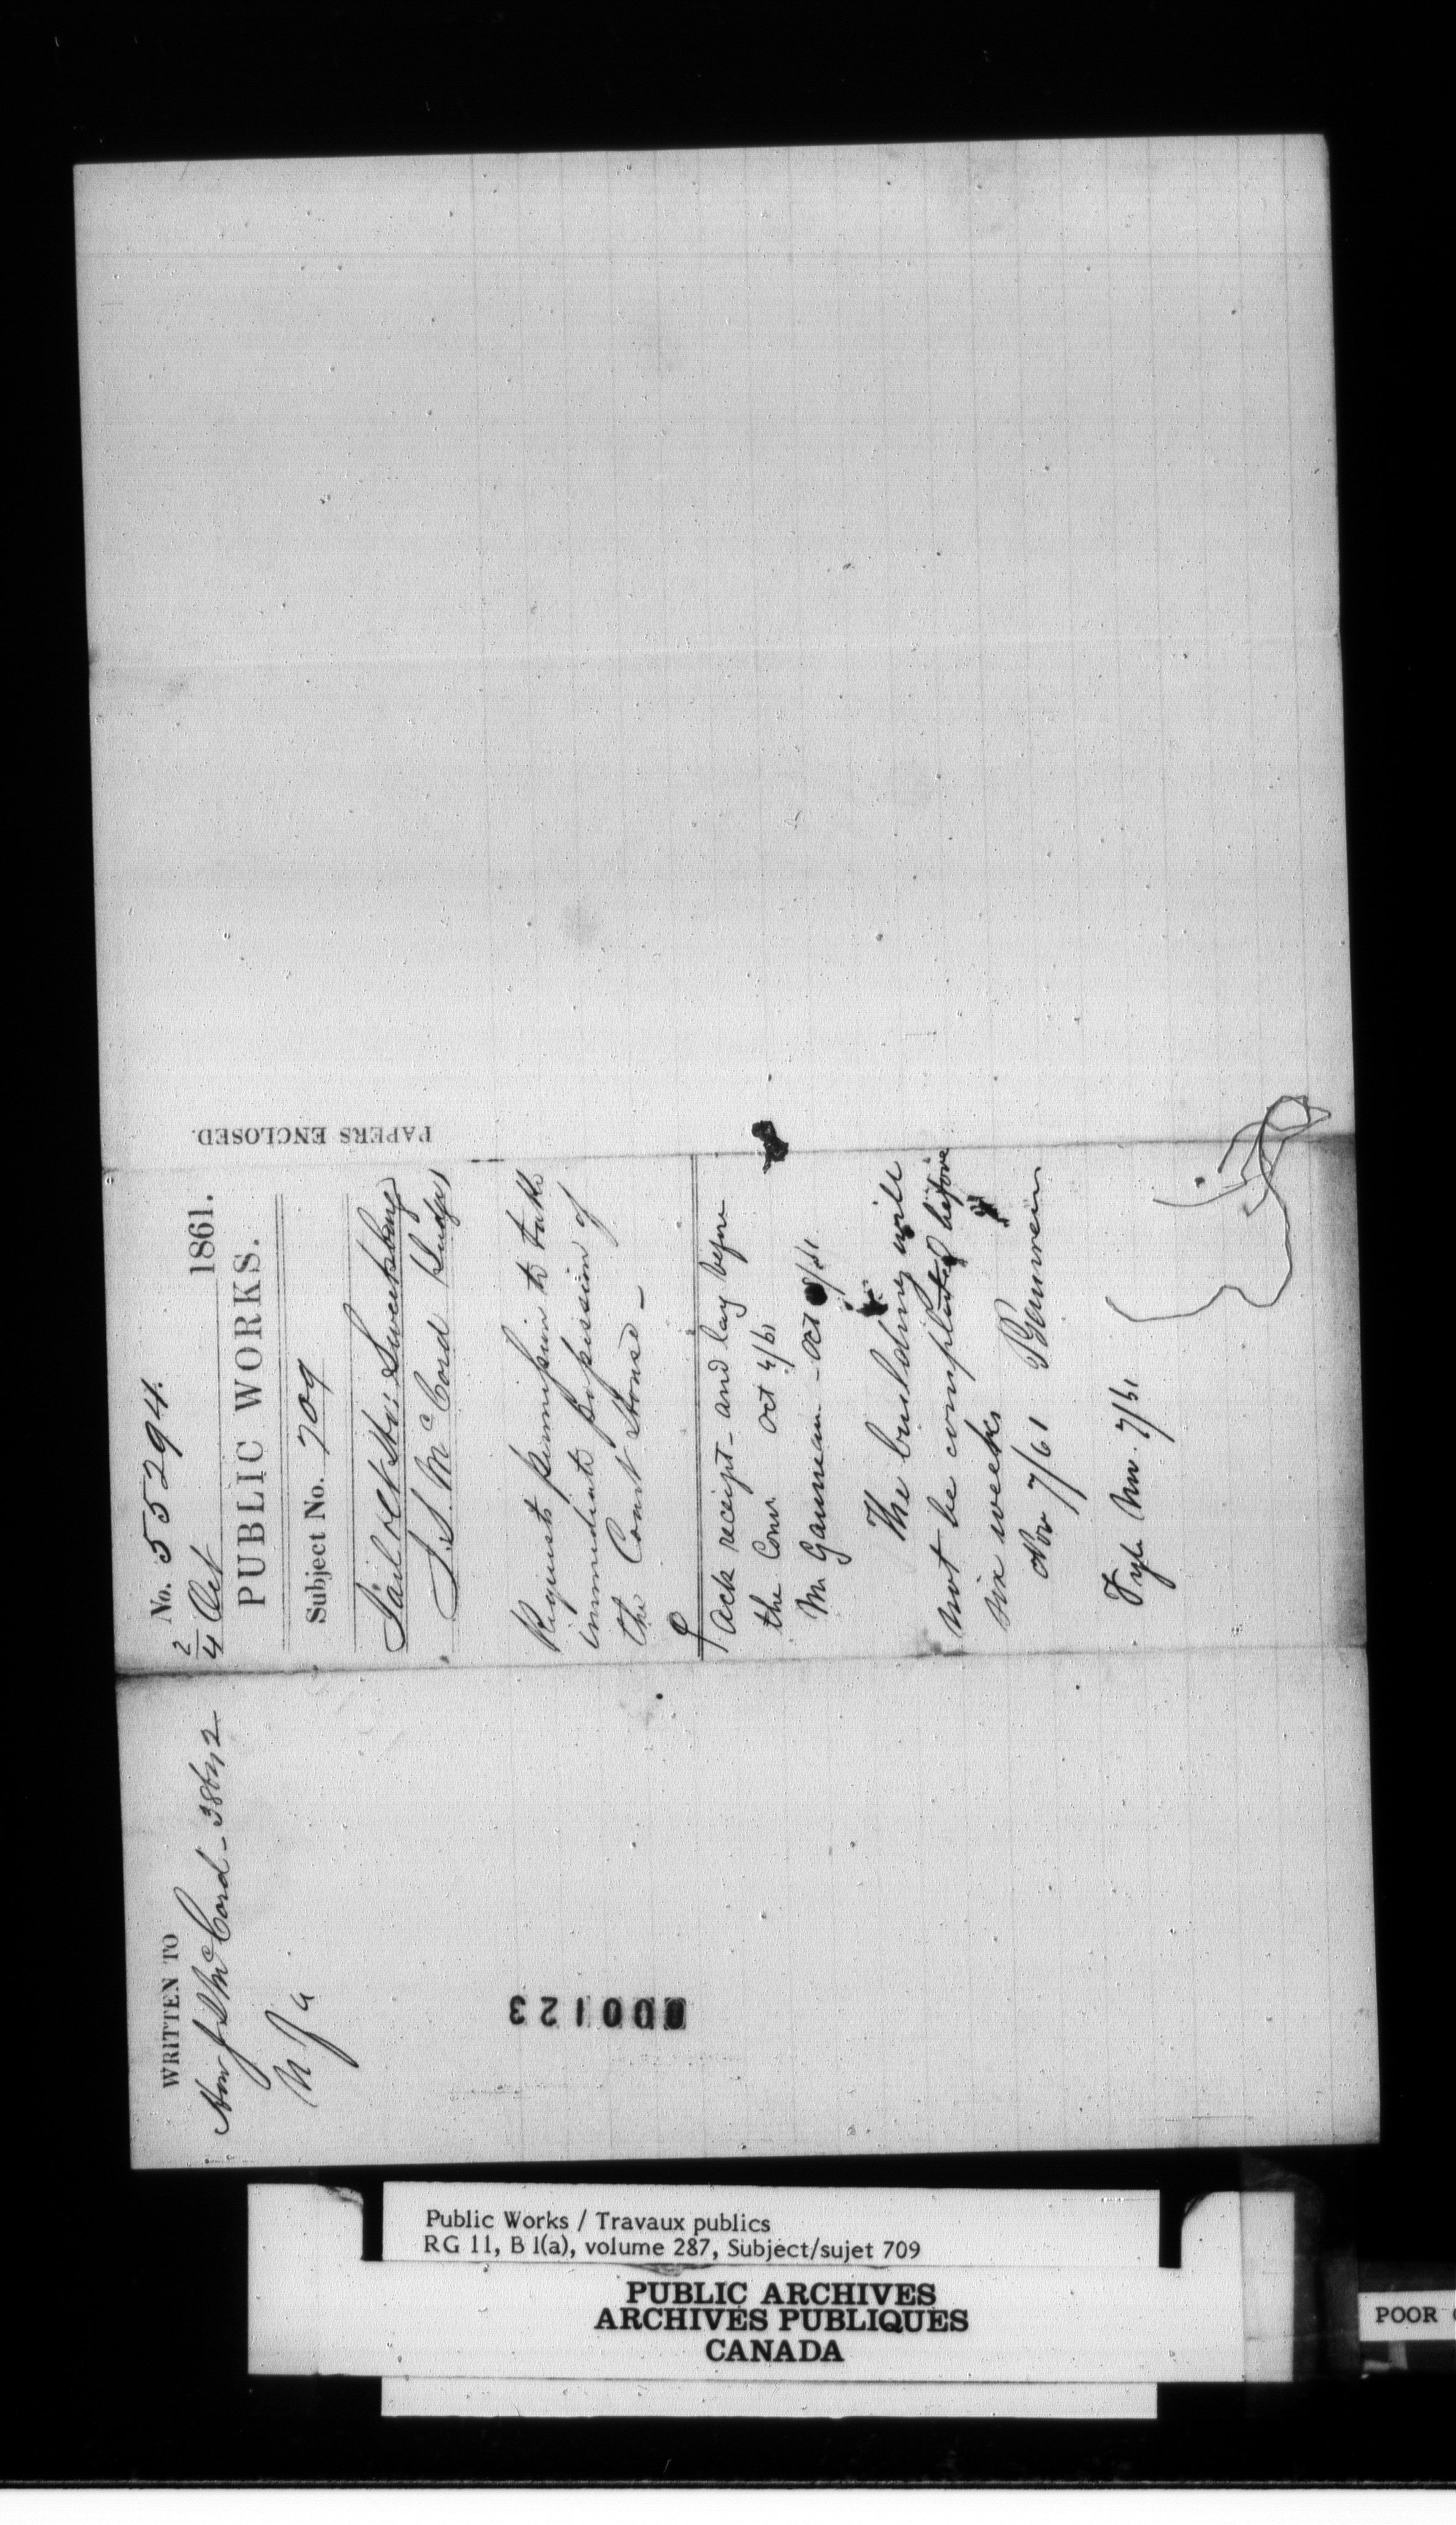 No. 55294.
2/4 Oct 1861.
PUBLIC WORKS.
Subject No. 709
Jail & Ct Ho: Sweetsburg
J. S. McCord Judge
Requests permission to take
immediate possession of
the Court House –
Ack receipt – and lay before
the Comr Oct 4/61
Mr Gauvreau – Oct /61
The building will
not be completed before
six weeks
Nov 7/61 Gauvreau
Fyle Nov. 7/61
PAPERS ENCLOSED.
WRITTEN TO
Hon J S McCord – 38642
000123
Public Works / Travaux publics
RG 11, B 1(a), volume 287, Subject/sujet 709
PUBLIC ARCHIVES
ARCHIVES PUBLIQUES
CANADA
POOR